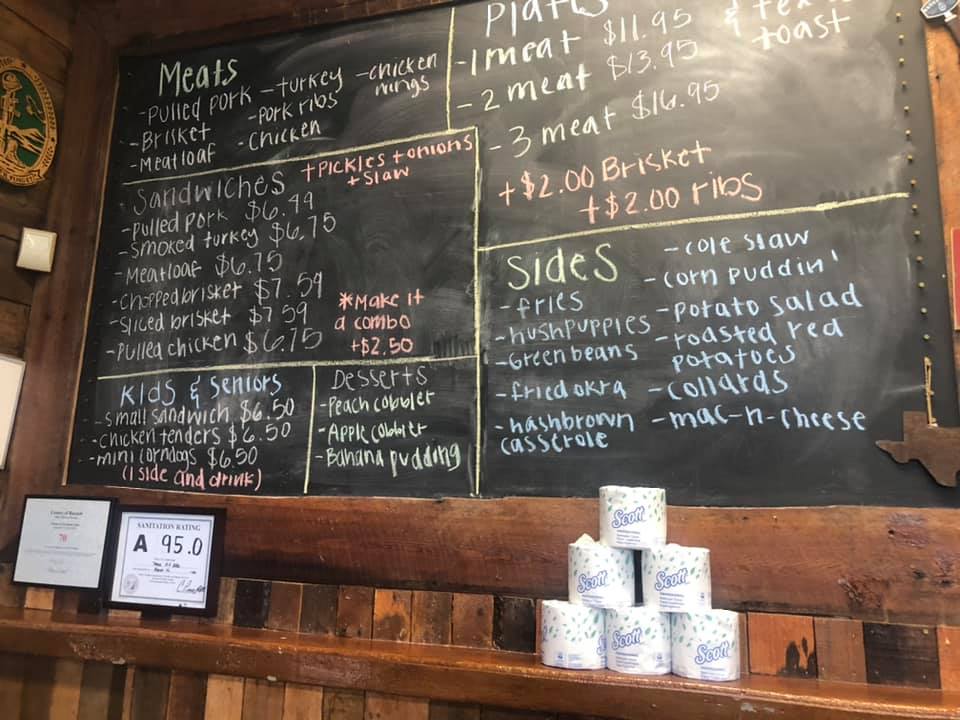 Meats
-Pulled pork -turkey -chicken wings
-Brisket -pork ribs
-Meatloaf -chicken
Sandwiches +Pickles +onions
+slaw
-pulled pork $6.49
-smoked turkey $6.75
-Meatloaf $6.75
-Chopped brisket $7.59
-Sliced brisket $7.59
-pulled chicken $6.75
*Make it
a combo
+$2.50
Kids & Seniors
-small sandwich $6.50
-chicken tenders $6.50
-mini corndogs $6.50
(1 side and drink)
Desserts
-Peach cobbler
-Apple cobbler
-Banana pudding
-1 meat $11.95 &
toast
-2 meat $13.95
-3 meat $16.95
+$2.00 Brisket
+$2.00 ribs
Sides
-fries
-hushpuppies
-Greenbeans
-fried okra
-hashbrown
casserole
-cole slaw
-corn puddin'
-potato salad
-roasted red
potatoes
-collards
-mac-n-cheese
70
SANITATION RATING
A 95.0
Scott
Scott
Scott
Scott
Scott